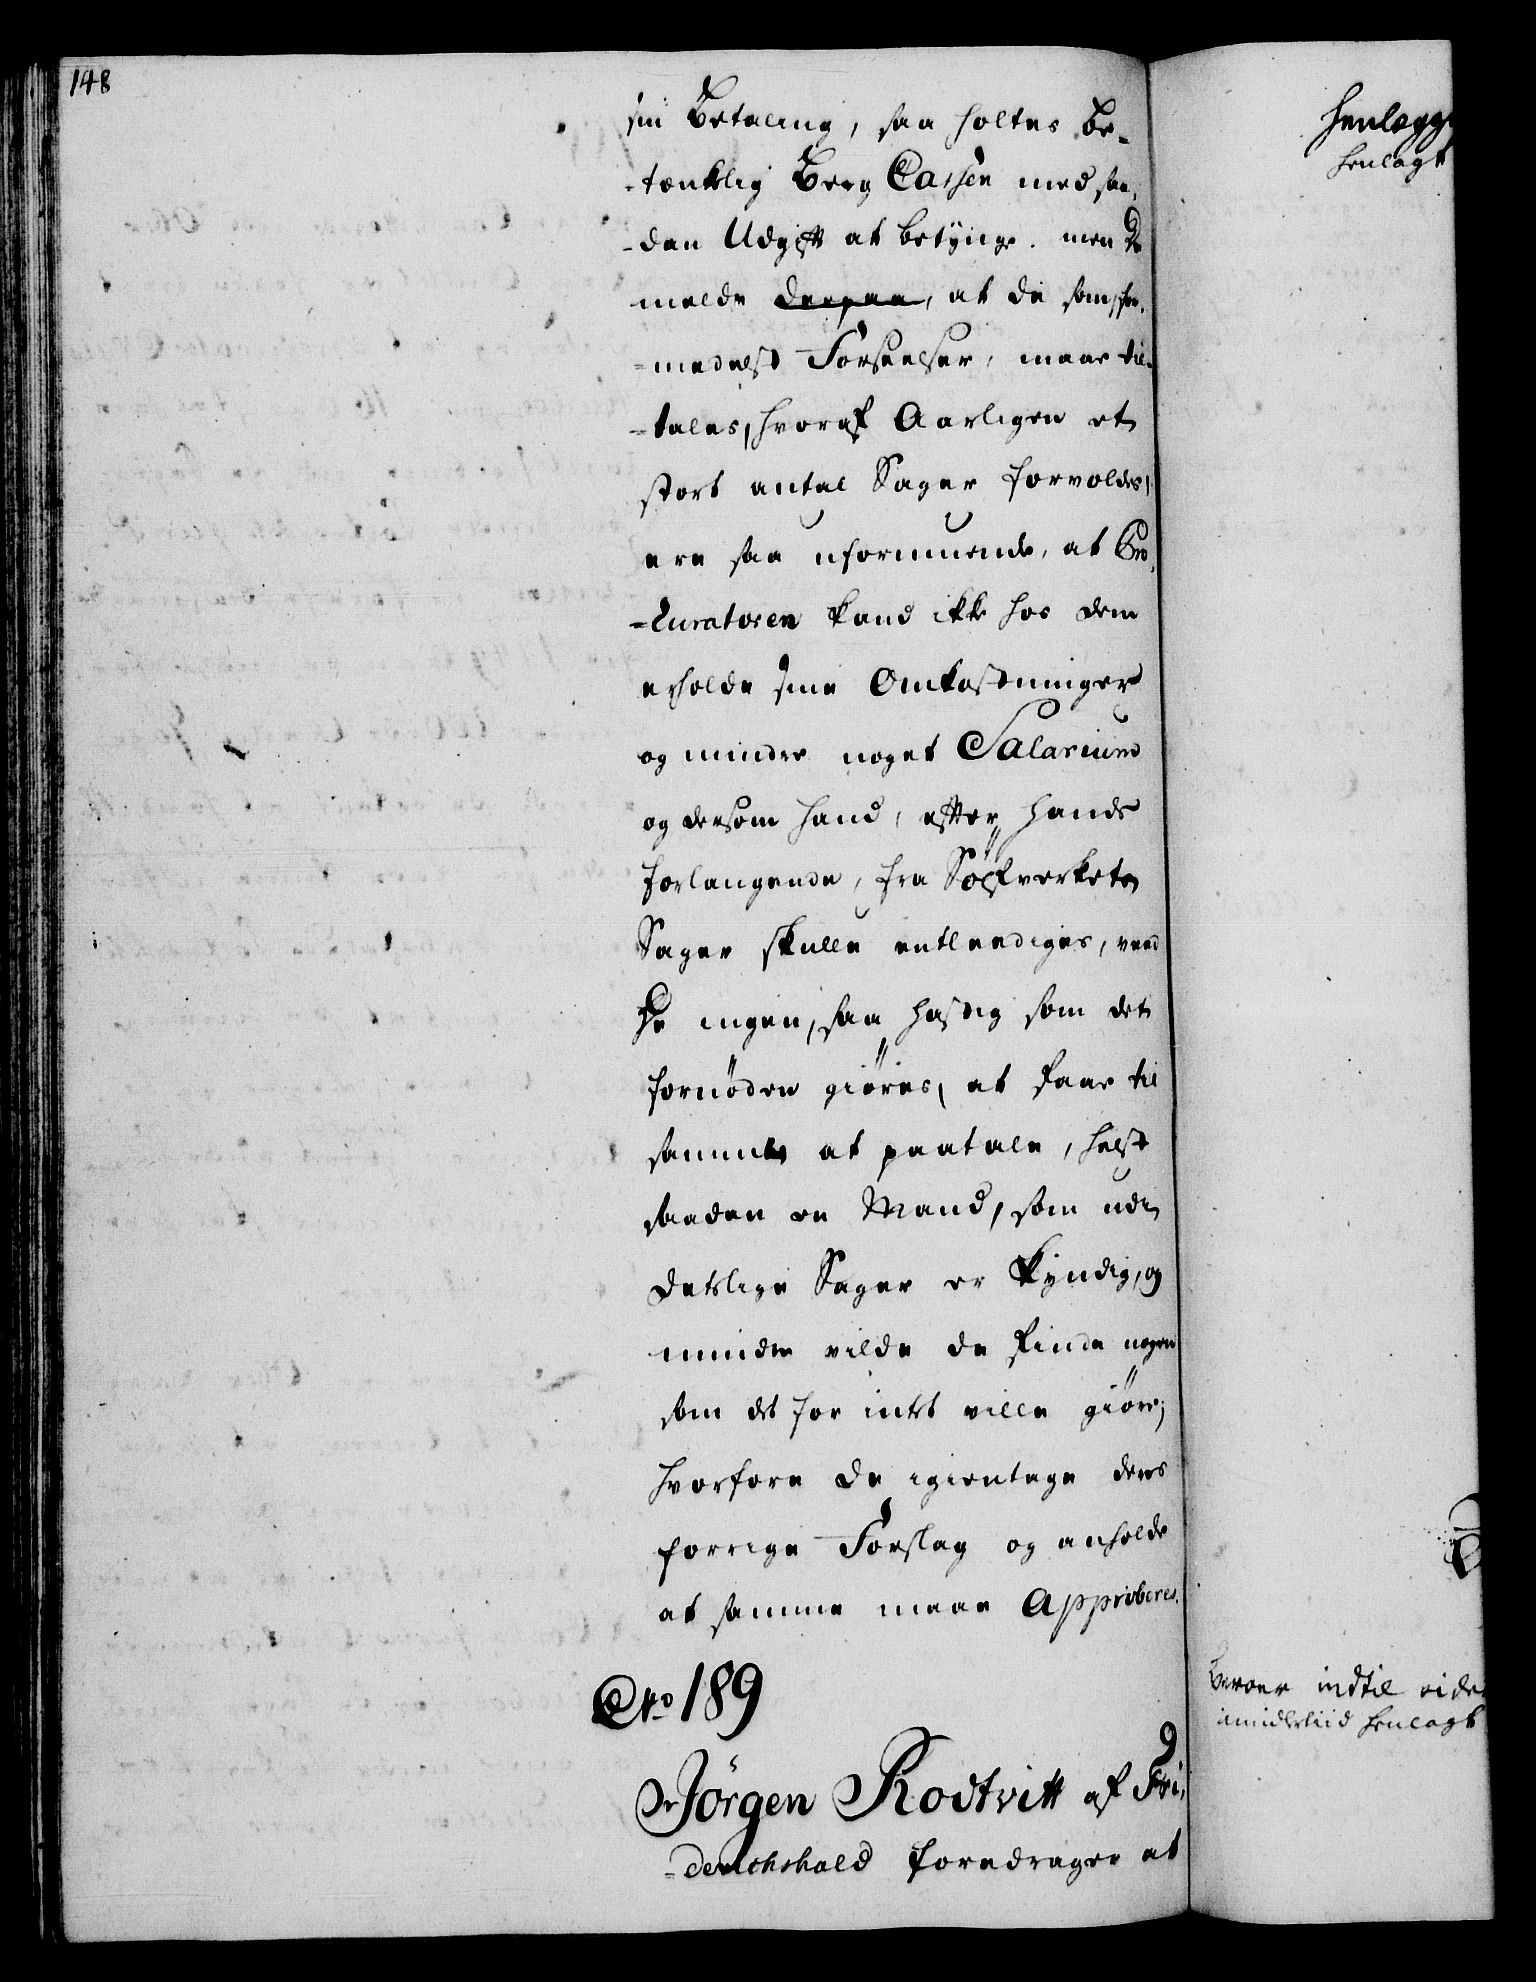 148
sin Betaling, saa holtes be-
-tænklig Berg Cassen med saa-
-dan Udgift at betynge. men De
melde derpaa, at de som for-
-medelst Forseelser, maae til-
-tales, hvoraf Aarligen et
stort antal Sager forvoldes,
ere saa uformuende, at Pro-
-curatoren kand ikke hos dem
erholde sine Omkostninger
og mindre noget Salarium
og dersom hand, efter hands
forlangende, fra Sølfverkets
Sager skulle entleediges, veed
De ingen, saa hastig som det
fornøden giøres, at faae til
samme at paatale, helst
saadan en Mand, som udi
detslige Sager er kyndig, og
mindre vilde de finde nogen
som det for intet ville giøre;
hvorfore de igientage deres
forrige Forslag og anholde
at samme maae Approberes.
No 189
Jørgen Rodtvitt af Fri-
-derichshald foredrager at
henlegg
henlagt
Beroer indtil vide
imidlertiid henlagt